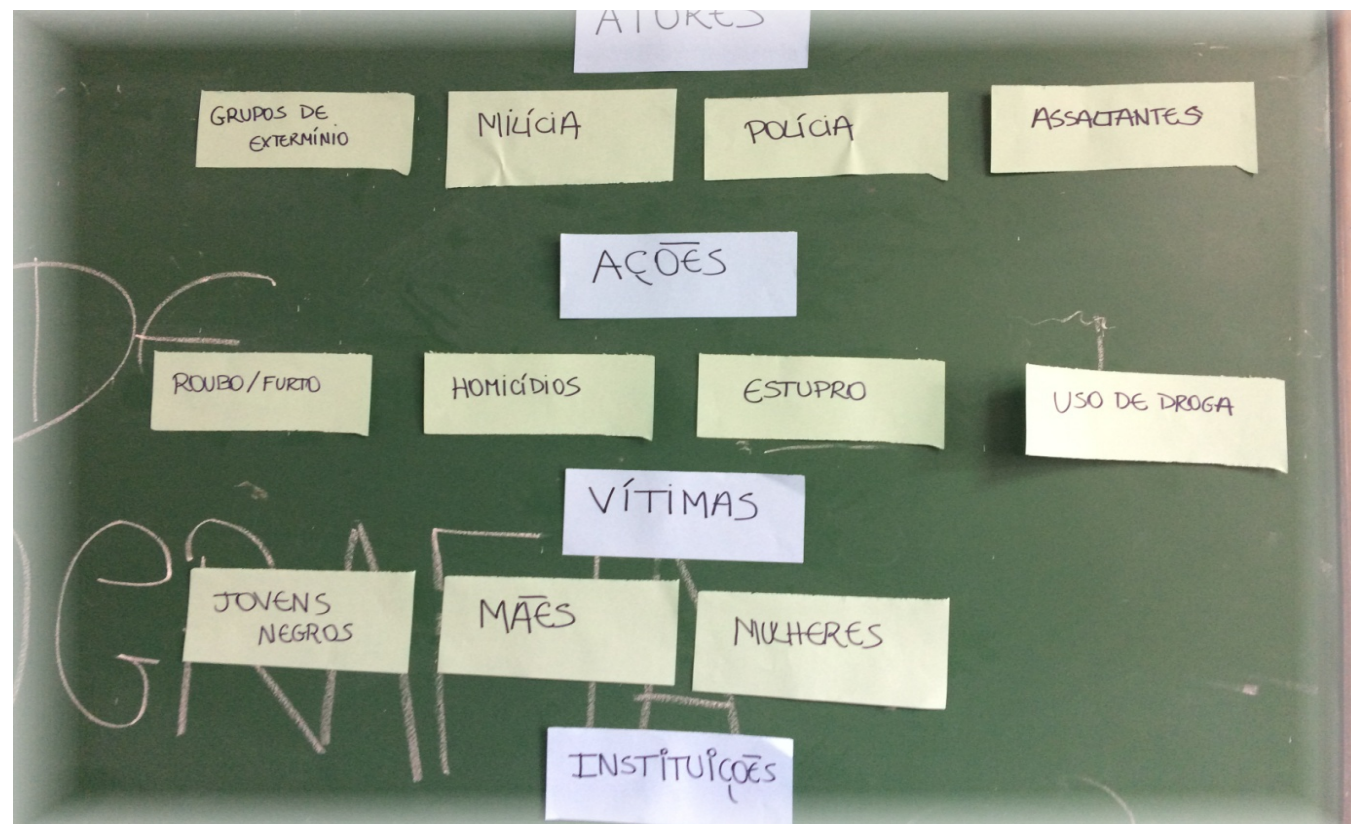 ATORES
GRUPOS DE
EXTERMÍNIO
MILÍCIA
POLÍCIA
ASSALTANTES
AÇÕES
DE
ROUBO/FURTO
HOMICÍDIOS
ESTUPRO
USO DE DROGA
VÍTIMAS
JOVENS
NEGROS
MÃES
MULHERES
INSTITUIÇÕES